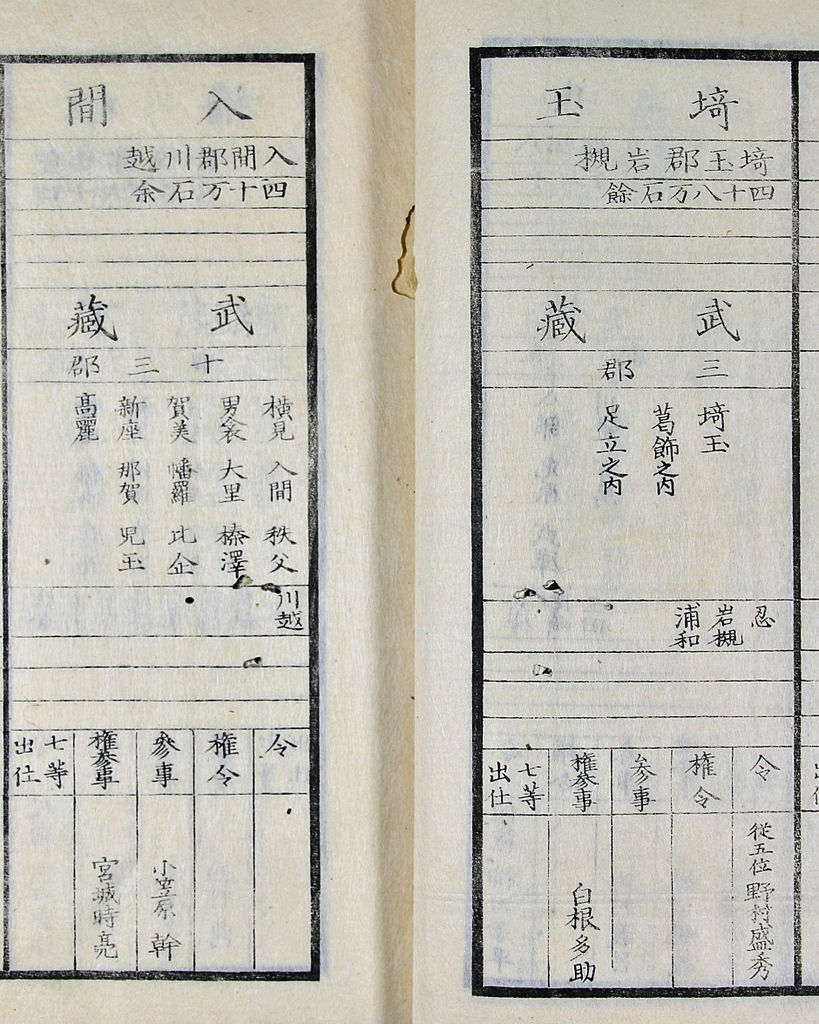 埼玉
埼玉郡岩槻
四十八万石餘
武藏
三郡
埼玉
葛飾之内
足立之内
忍
岩槻
浦和
令
従五位 野村盛秀
権令
参事
権参事
白根多助
七等
出仕
入間
入間郡川越
四十万石余
武藏
十三郡
横見 入間 秩父
男衾 大里 榛澤
賀美 幡羅 比企
新座 那賀 児玉
高麗
川越
令
権令
參事
小笠原 幹
権參事
宮城時亮
七等
出仕